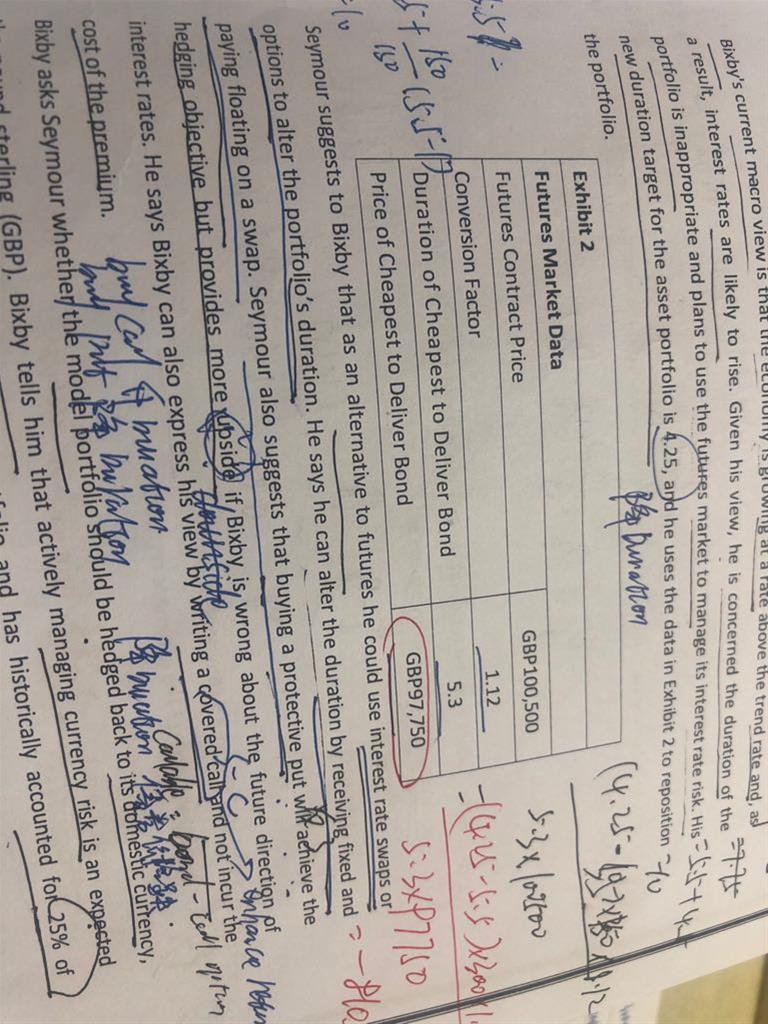 Bixby's current macro view is that the economy is growing at a rate above the trend rate and, as
a result, interest rates are likely to rise. Given his view, he is concerned the duration of the
portfolio is inappropriate and plans to use the futures market to manage its interest rate risk. His
new duration target for the asset portfolio is 4.25, and he uses the data in Exhibit 2 to reposition
the portfolio.
降 Duration
Exhibit 2
Futures Market Data
Futures Contract Price GBP100,500
Conversion Factor 1.12
Duration of Cheapest to Deliver Bond 5.3
Price of Cheapest to Deliver Bond GBP97,750
5.3×100500
5.3×97750
Seymour suggests to Bixby that as an alternative to futures he could use interest rate swaps or
options to alter the portfolio's duration. He says he can alter the duration by receiving fixed and
paying floating on a swap. Seymour also suggests that buying a protective put will achieve the
hedging objective but provides more upside if Bixby is wrong about the future direction of
downside
interest rates. He says Bixby can also express his view by writing a covered call and not incur the
cost of the premium.
buy call 升 Duration
buy put 降 Duration
Bixby asks Seymour whether the model portfolio should be hedged back to its domestic currency,
sterling (GBP). Bixby tells him that actively managing currency risk is an expected
and has historically accounted for 25% of